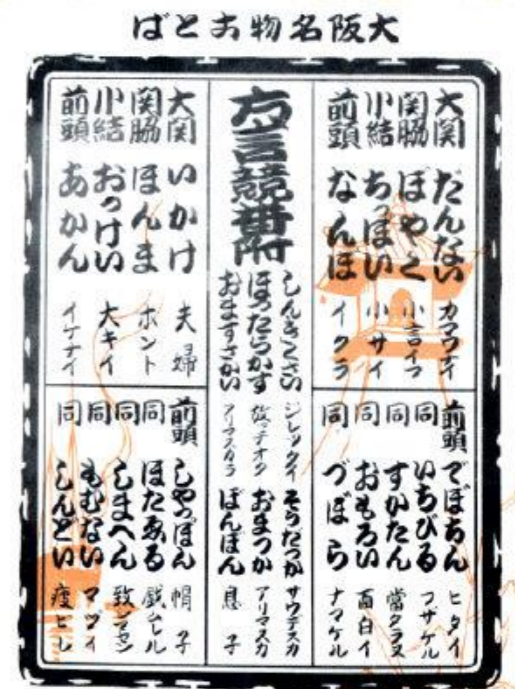 大阪名物古とば
大関 だんない カマワナイ
関脇 ぼやく 小言イフ
小結 ちっぽい 小サイ
前頭 なんぼ イクラ
前頭 でぼちん ヒタイ
同 いちびる フザケル
同 すかたん
同 おもろい 面白イ
同 づぼら ナマケル
方言競番附
しんきくさい ジレッタイ
ほったらかす 放ッテオク
おますさかい アリマスカラ
そうだっか サウデスカ
おまっか アリマスカ
ぼんぼん 息子
大関 いかけ 夫婦
関脇 ほんま ホント
小結 おっけい 大キイ
前頭 あかん イケナイ
前頭 しやっぽん 帽子
同 ほたゑる 戯レル
同 しまへん 致シマセン
同 もむない マヅイ
同 しんどい